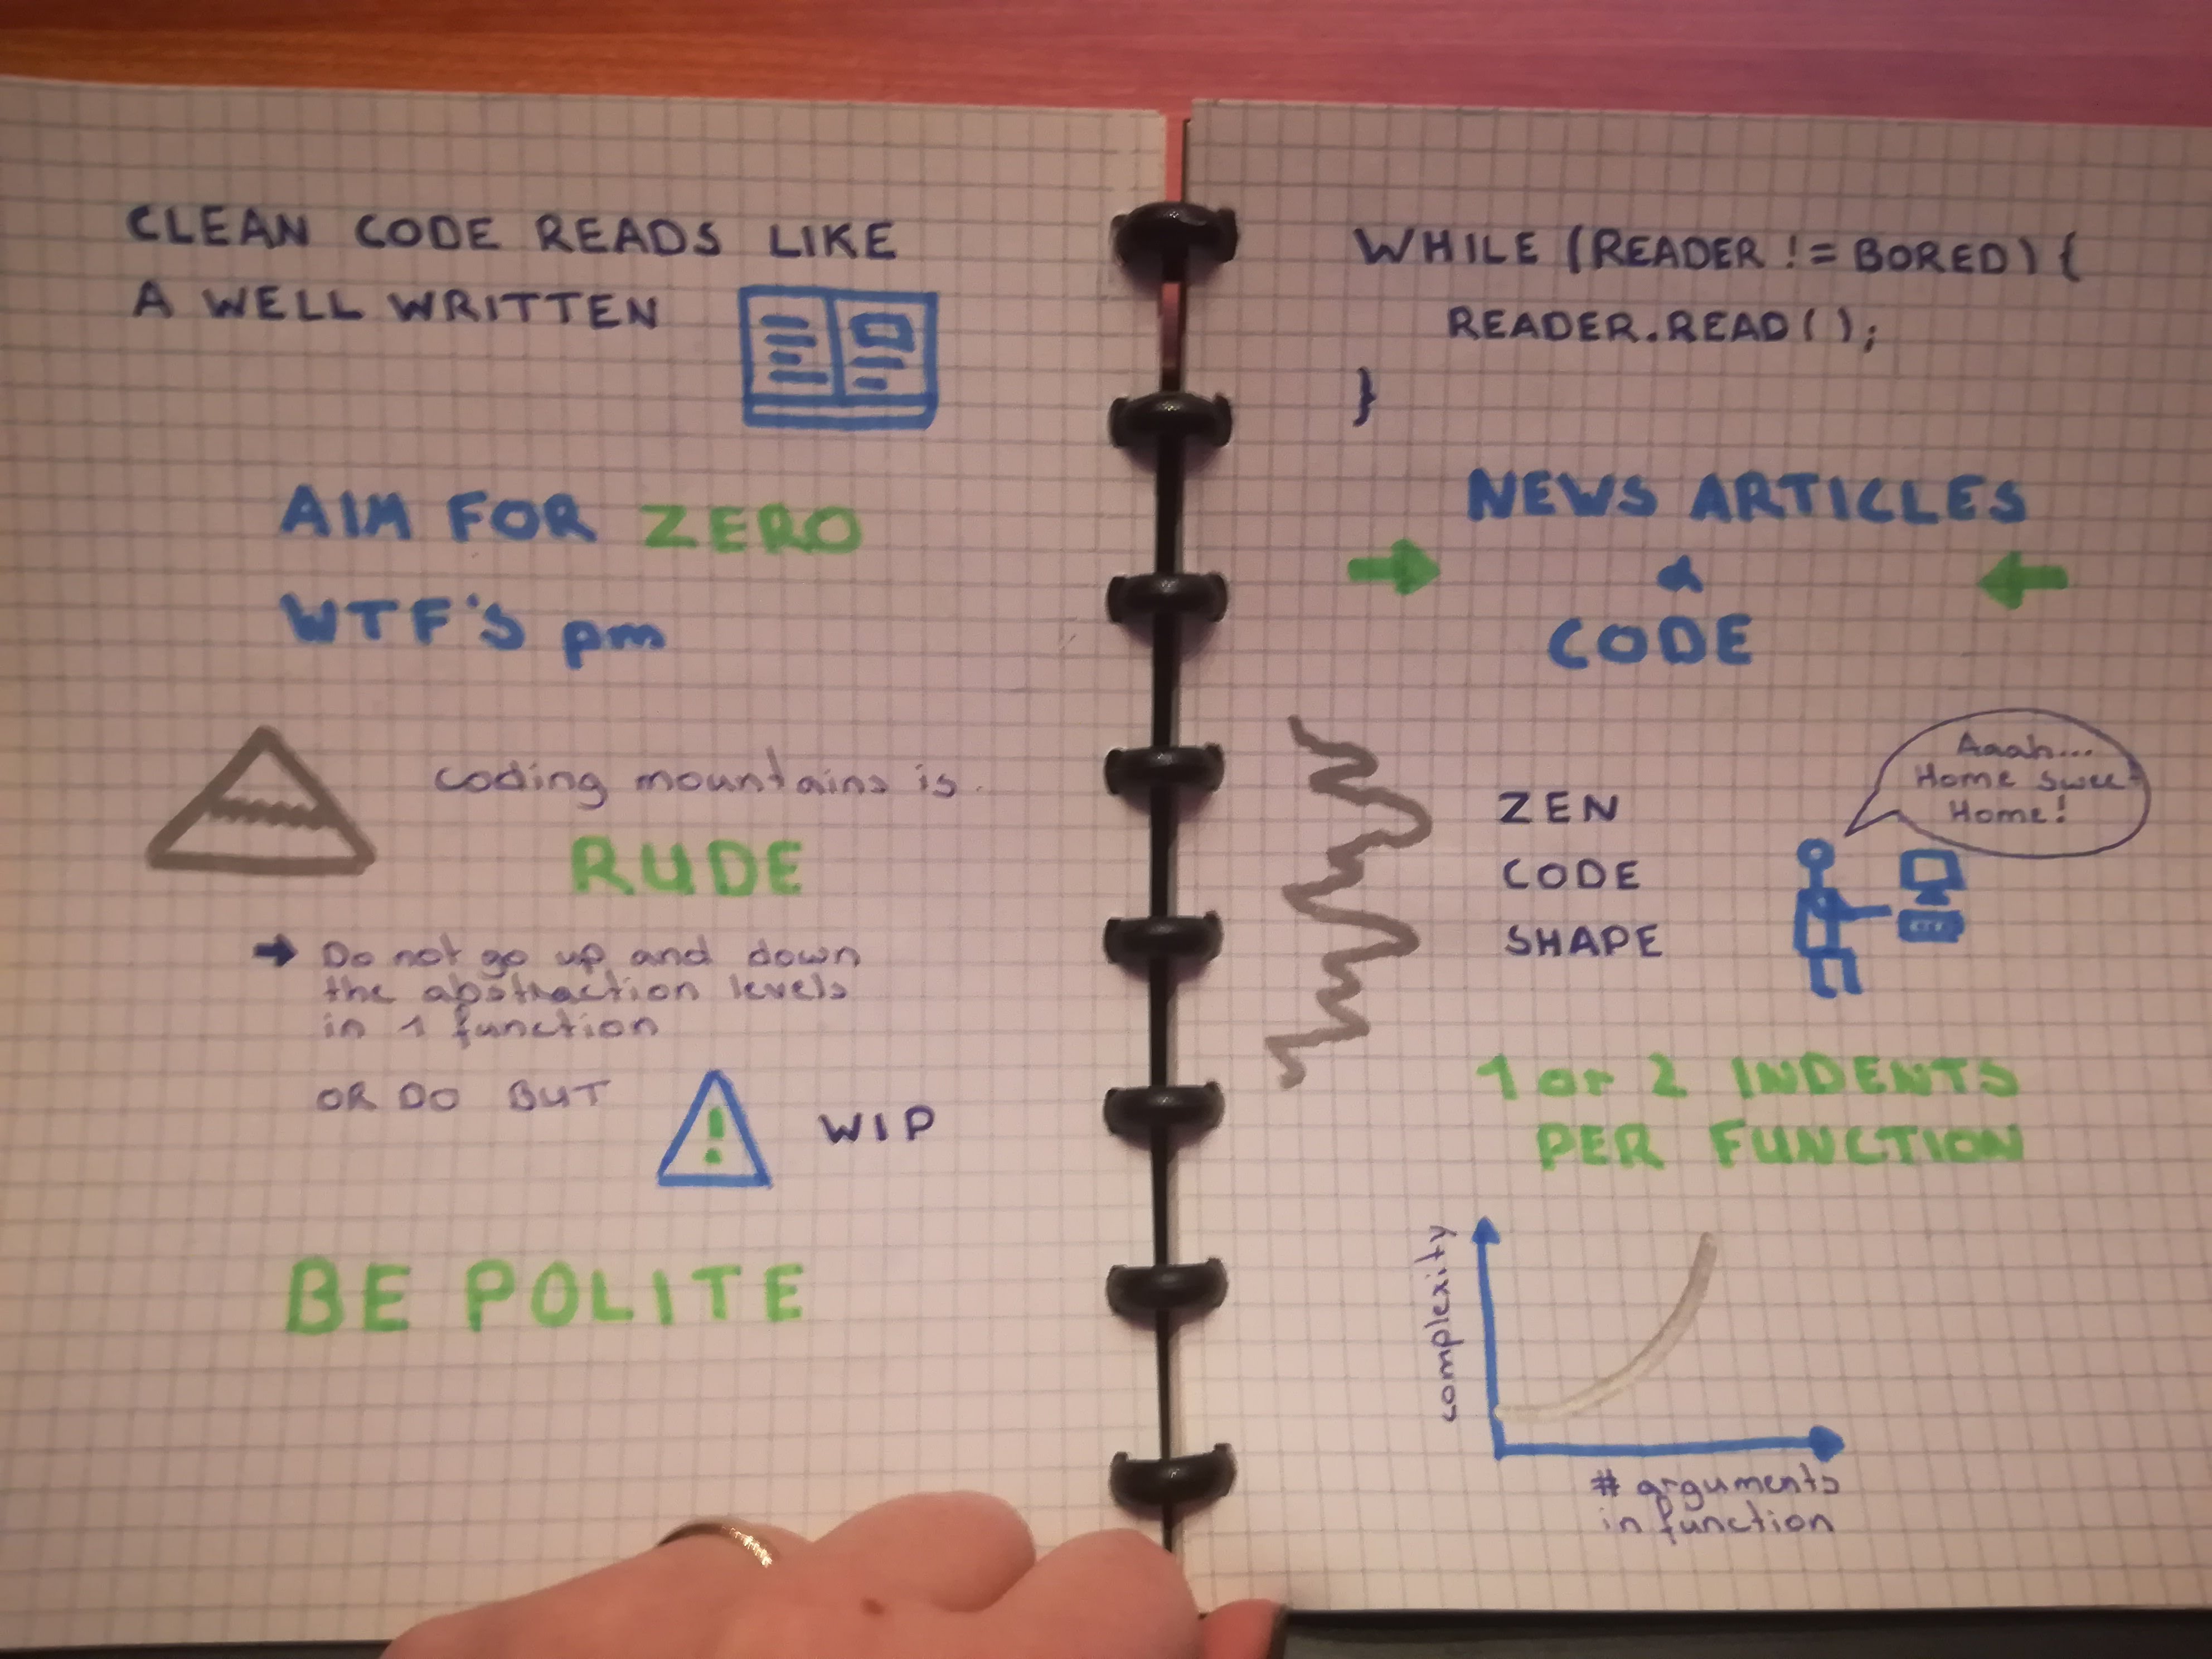 CLEAN CODE READS LIKE
A WELL WRITTEN
AIM FOR ZERO
WTF'S pm
coding mountains is
RUDE
→ Do not go up and down
the abstraction levels
in 1 function
OR DO BUT
! WIP
BE POLITE
WHILE (READER != BORED) {
READER.READ();
}
NEWS ARTICLES
&
CODE
ZEN
CODE
SHAPE
Aaah...
Home sweet
Home!
1 or 2 INDENTS
PER FUNCTION
complexity
# arguments
in function